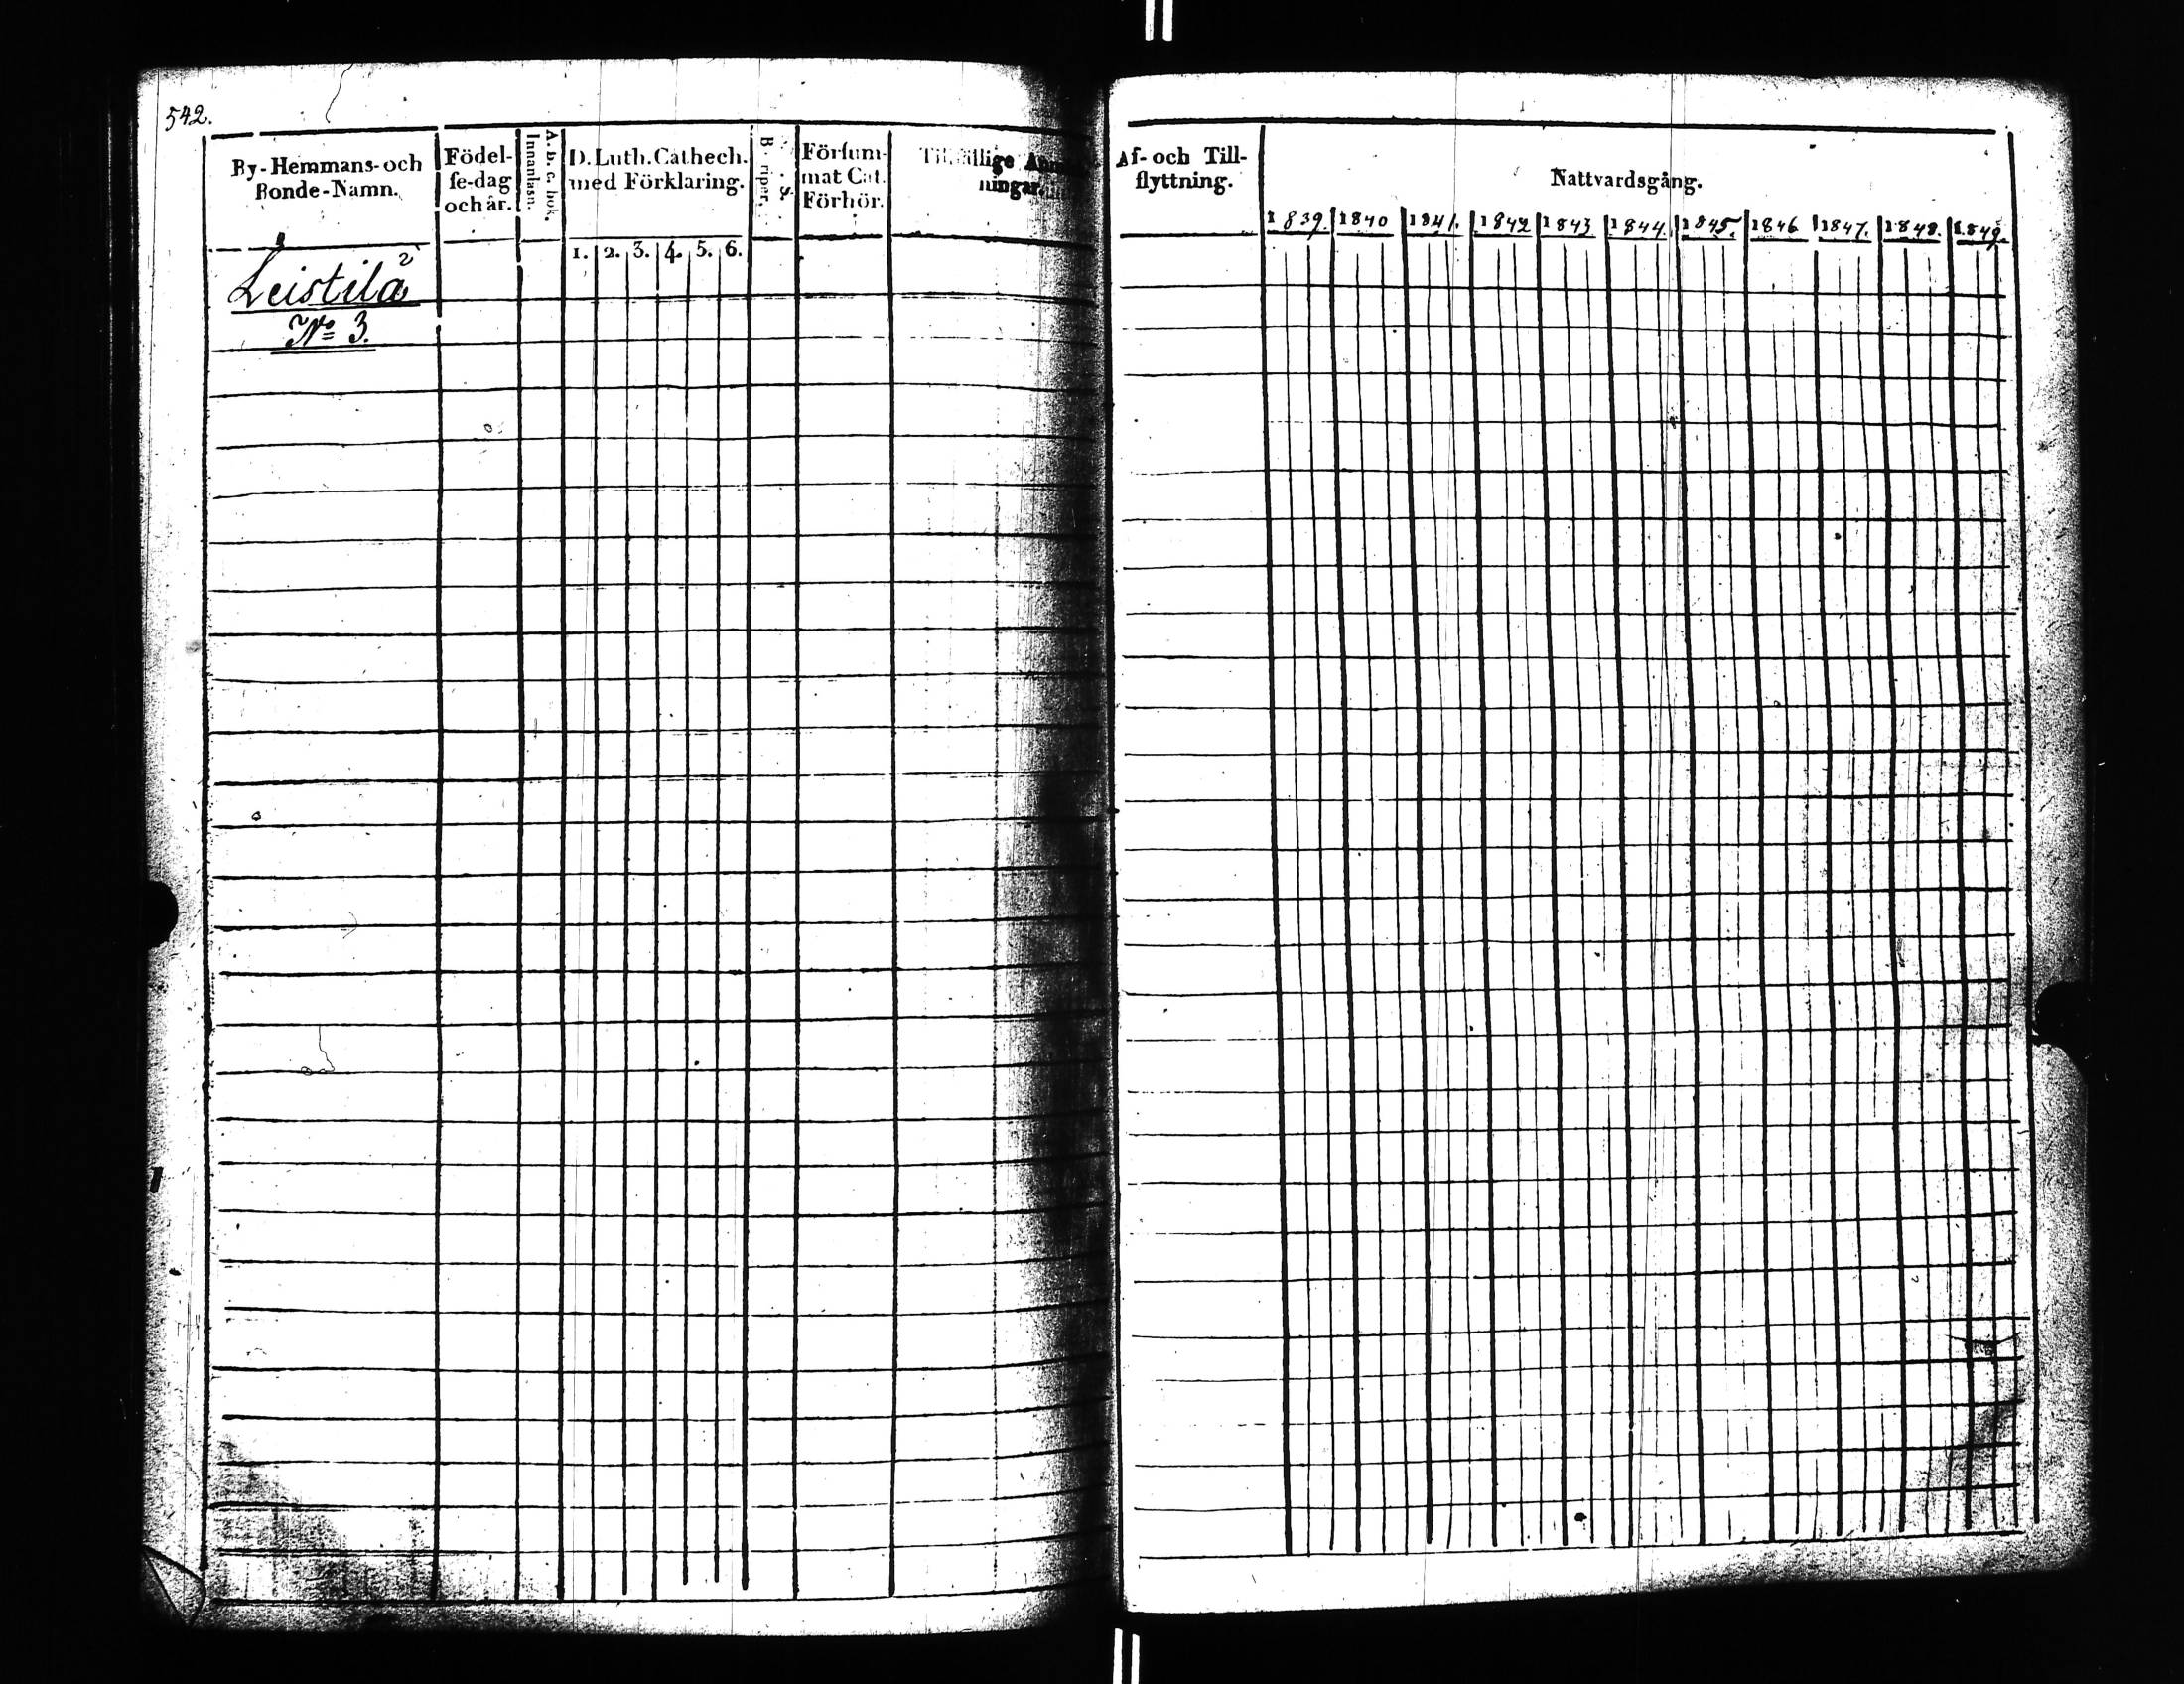 542.
By-Hemmans- och
Bonde-Namn.
Födel-
se-dag
och år.
A. b. c. bok.
Innanläsn.
D. Luth. Cathech.
med Förklaring.
1. 2. 3. 4. 5. 6.
Försum-
mat Cat.
Förhör.
Tillfällige Anmärk-
ningar.
Leistila
2
No 3.
Af- och Till-
flyttning.
Nattvardsgång.
1839. 1840 1841. 1842 1843 1844 1845. 1846 1847. 1848. 1849.